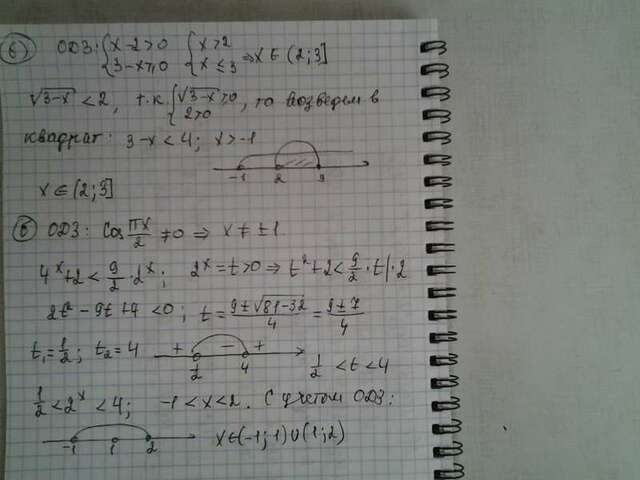 б) ОДЗ: {x-2>0 {3-x≥0 {x>2 {x≤3 ⇒ x∈(2;3]
√3-x < 2, т.к. {√3-x ≥0 {2>0, то возведем в
квадрат: 3-x<4; x>-1
-1 2 3
x∈(2;3]
ОДЗ: cos πx/2 ≠0 ⇒ x≠±1
4^x+2<9/2·2^x; 2^x=t>0 ⇒ t²+2<9/2·t|·2
2t²-9t+4<0; t=(9±√81-32)/4=(9±7)/4
t₁=1/2; t₂=4 + - + 1/2 4 1/2<t<4
1/2<2^x<4; -1<x<2. С учетом ОДЗ:
-1 1 2 x∈(-1;1)∪(1;2)